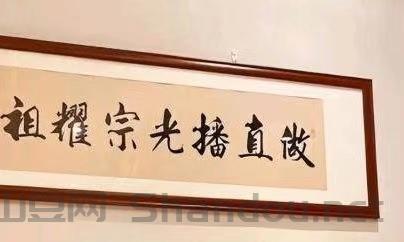 做直播光宗耀祖
山豆网 Shandou.net